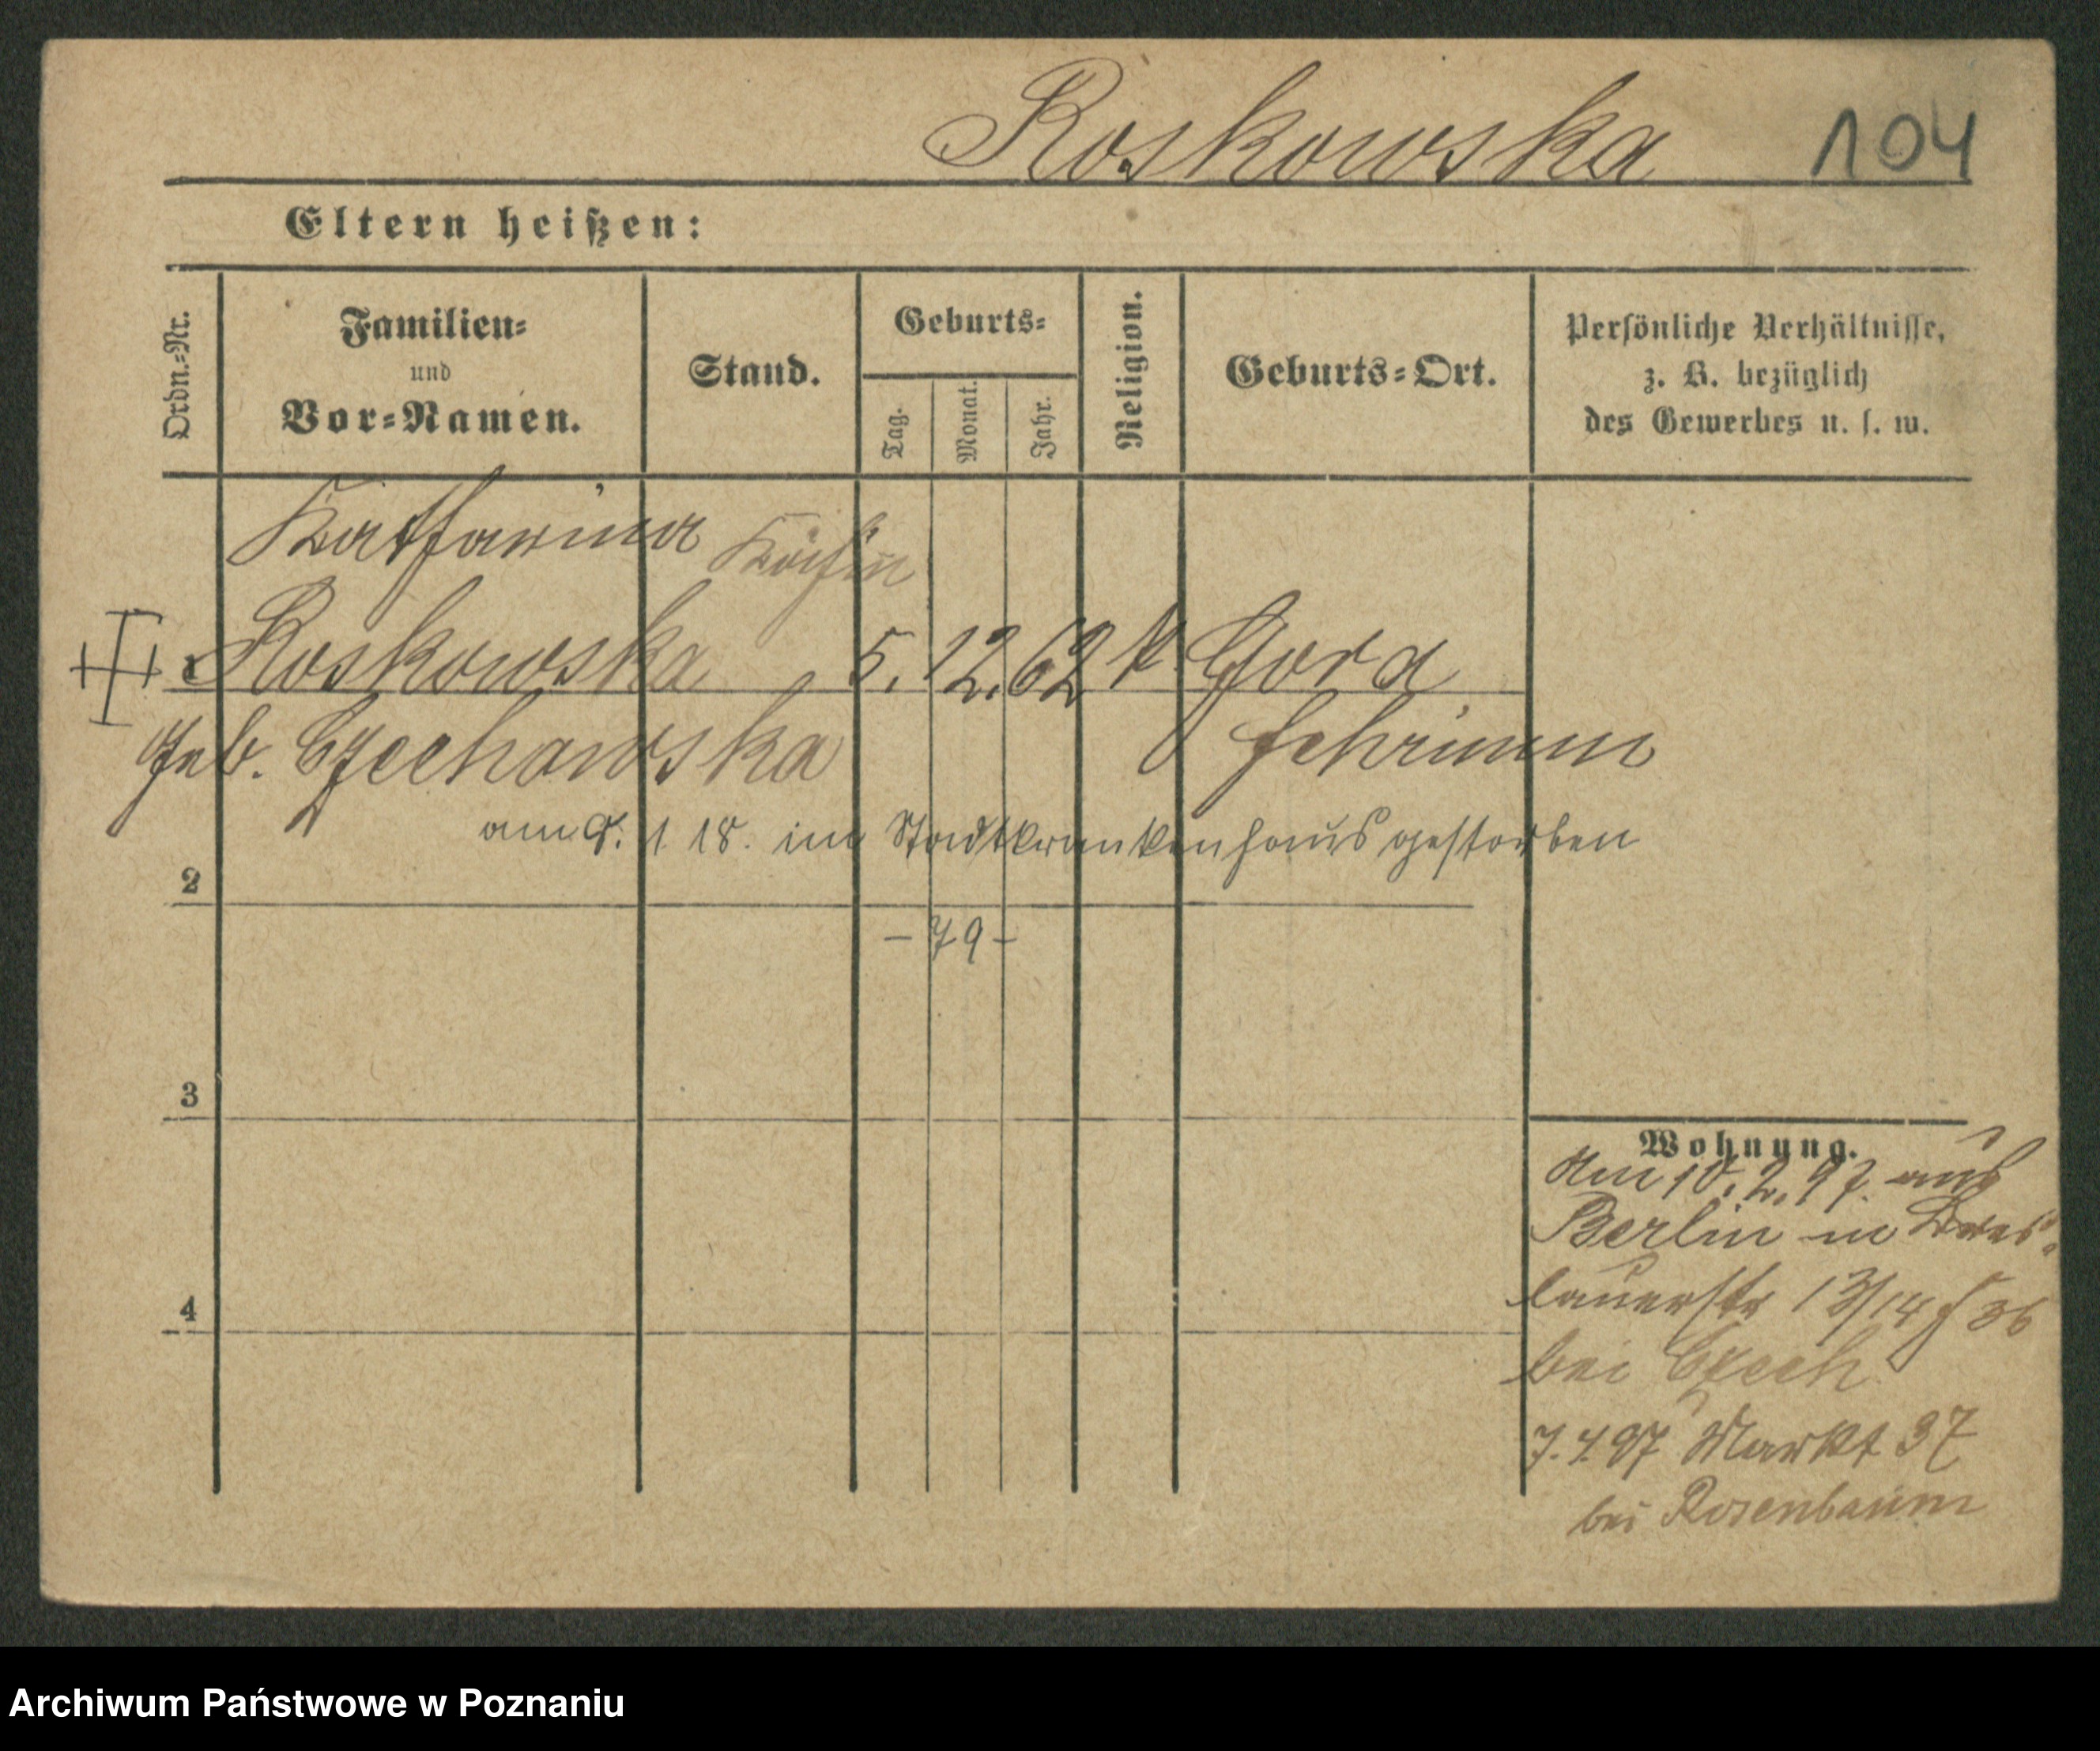 Roskowska 104
Eltern heißen:
Ordn.-Nr.
Familien-
und
Vor-Namen.
Stand.
Geburts-
Tag.
Monat.
Jahr.
Religion.
Geburts-Ort.
Persönliche Verhältnisse,
z. B. bezüglich
des Gewerbes u. s. w.
Katharina Köchin
1 Roskowska 5. 12. 62 k. Gora
geb. Czechowska
am 9. 1 18. im Stadtkrankenhaus gestorben
2
-79-
3
4
Wohnung.
Am 10.2.97. aus
Berlin in Bres-
lauerstr 13/14
bei Czech
7.4.97 Markt 37
bei Rosenbaum
Archiwum Państwowe w Poznaniu